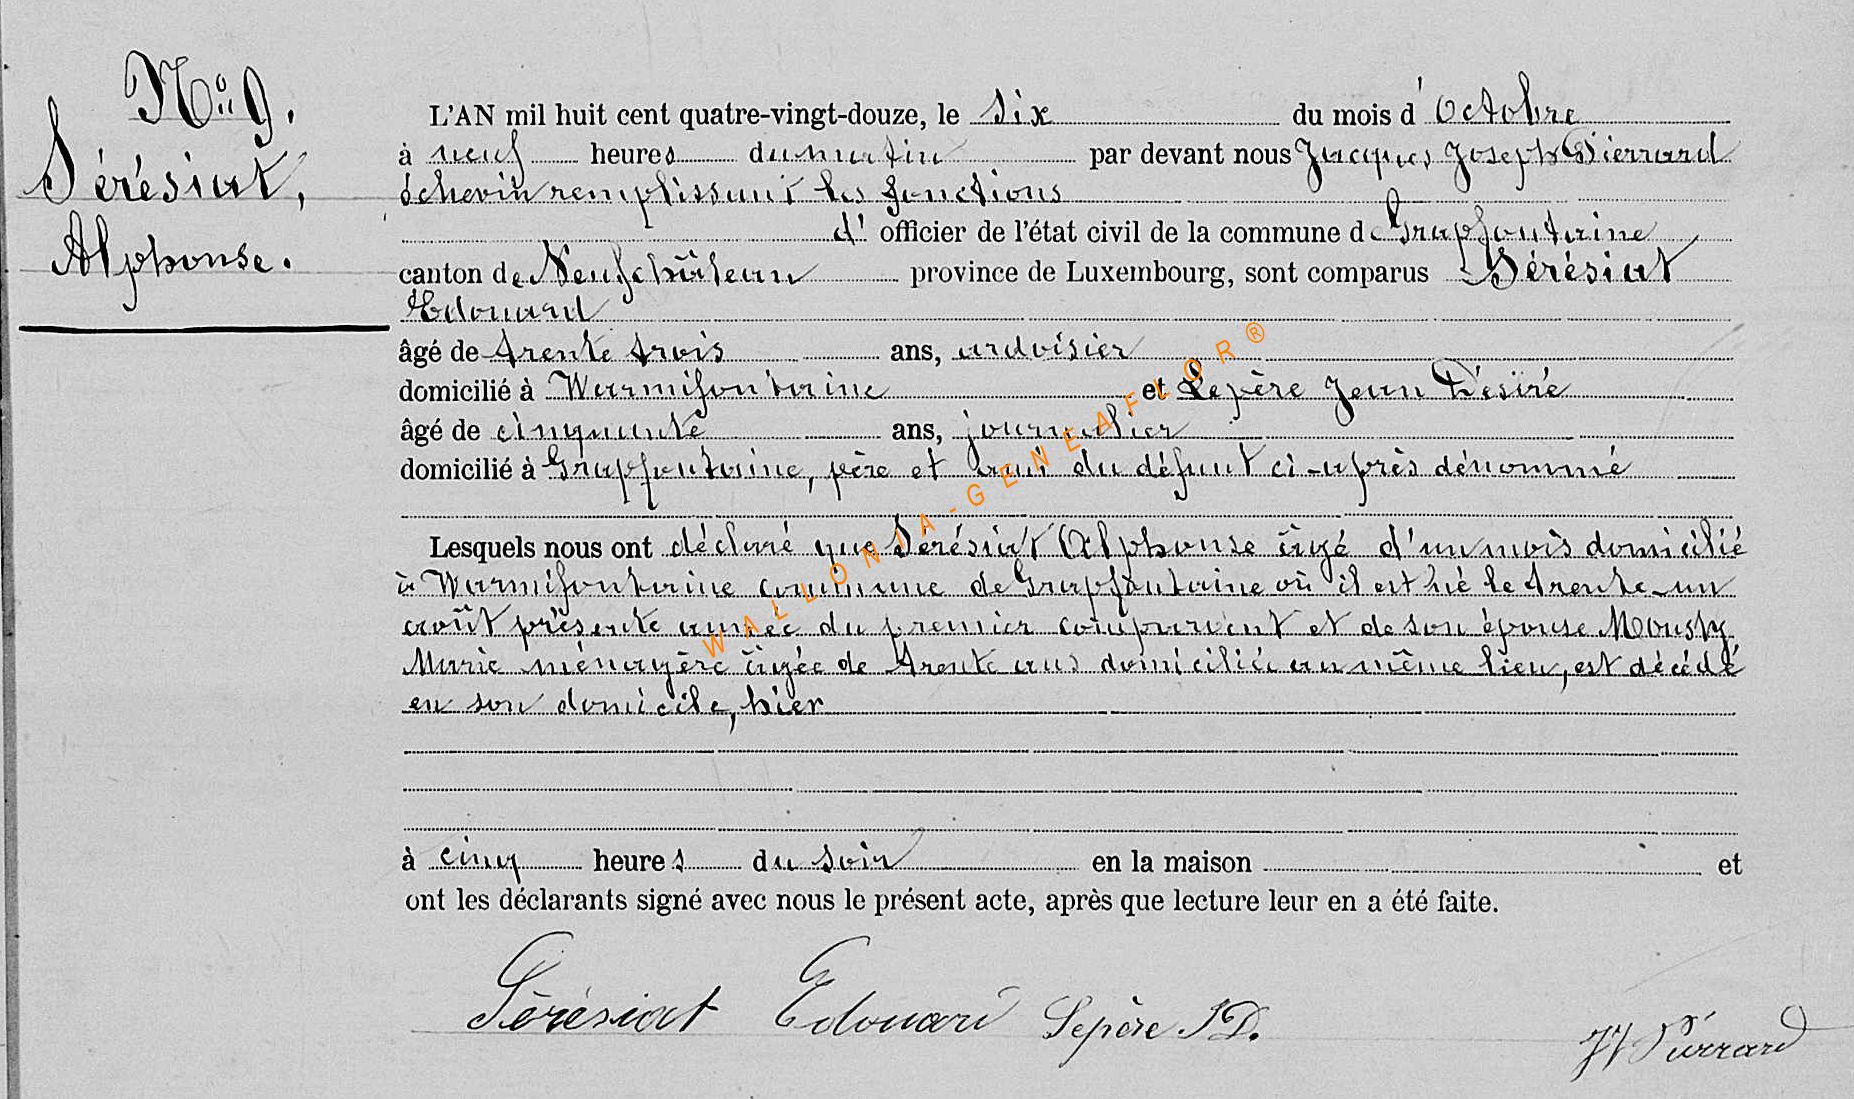 N° 9.
Sérésiat,
Alphonse.
L'AN mil huit cent quatre-vingt-douze, le six du mois d'Octobre
à neuf heures du matin par devant nous Jacques Joseph Pierrard
échevin remplissant les fonctions
d' officier de l'état civil de la commune de Grapfontaine
canton de Neufchâteau province de Luxembourg, sont comparus Sérésiat
Edouard
âgé de trente trois ans, ardoisier
domicilié à Warmifontaine et Lepère Jean Désiré
âgé de cinquante ans, journalier
domicilié à Grapfontaine, père et ami du défunt ci-après dénommé
Lesquels nous ont déclaré que Sérésiat Alphonse âgé d'un mois domicilié
à Warmifontaine commune de Grapfontaine où il est né le trente-un
août présente année du premier comparant et de son épouse Mousty
Marie ménagère âgée de trente ans domiciliée au même lieu, est décédé
en son domicile, hier
à cinq heures du soir en la maison et
ont les déclarants signé avec nous le présent acte, après que lecture leur en a été faite.
Sérésiat Edouard Lepère J D. JJ Pierrard
WALLONIA-GENEAFLOR®